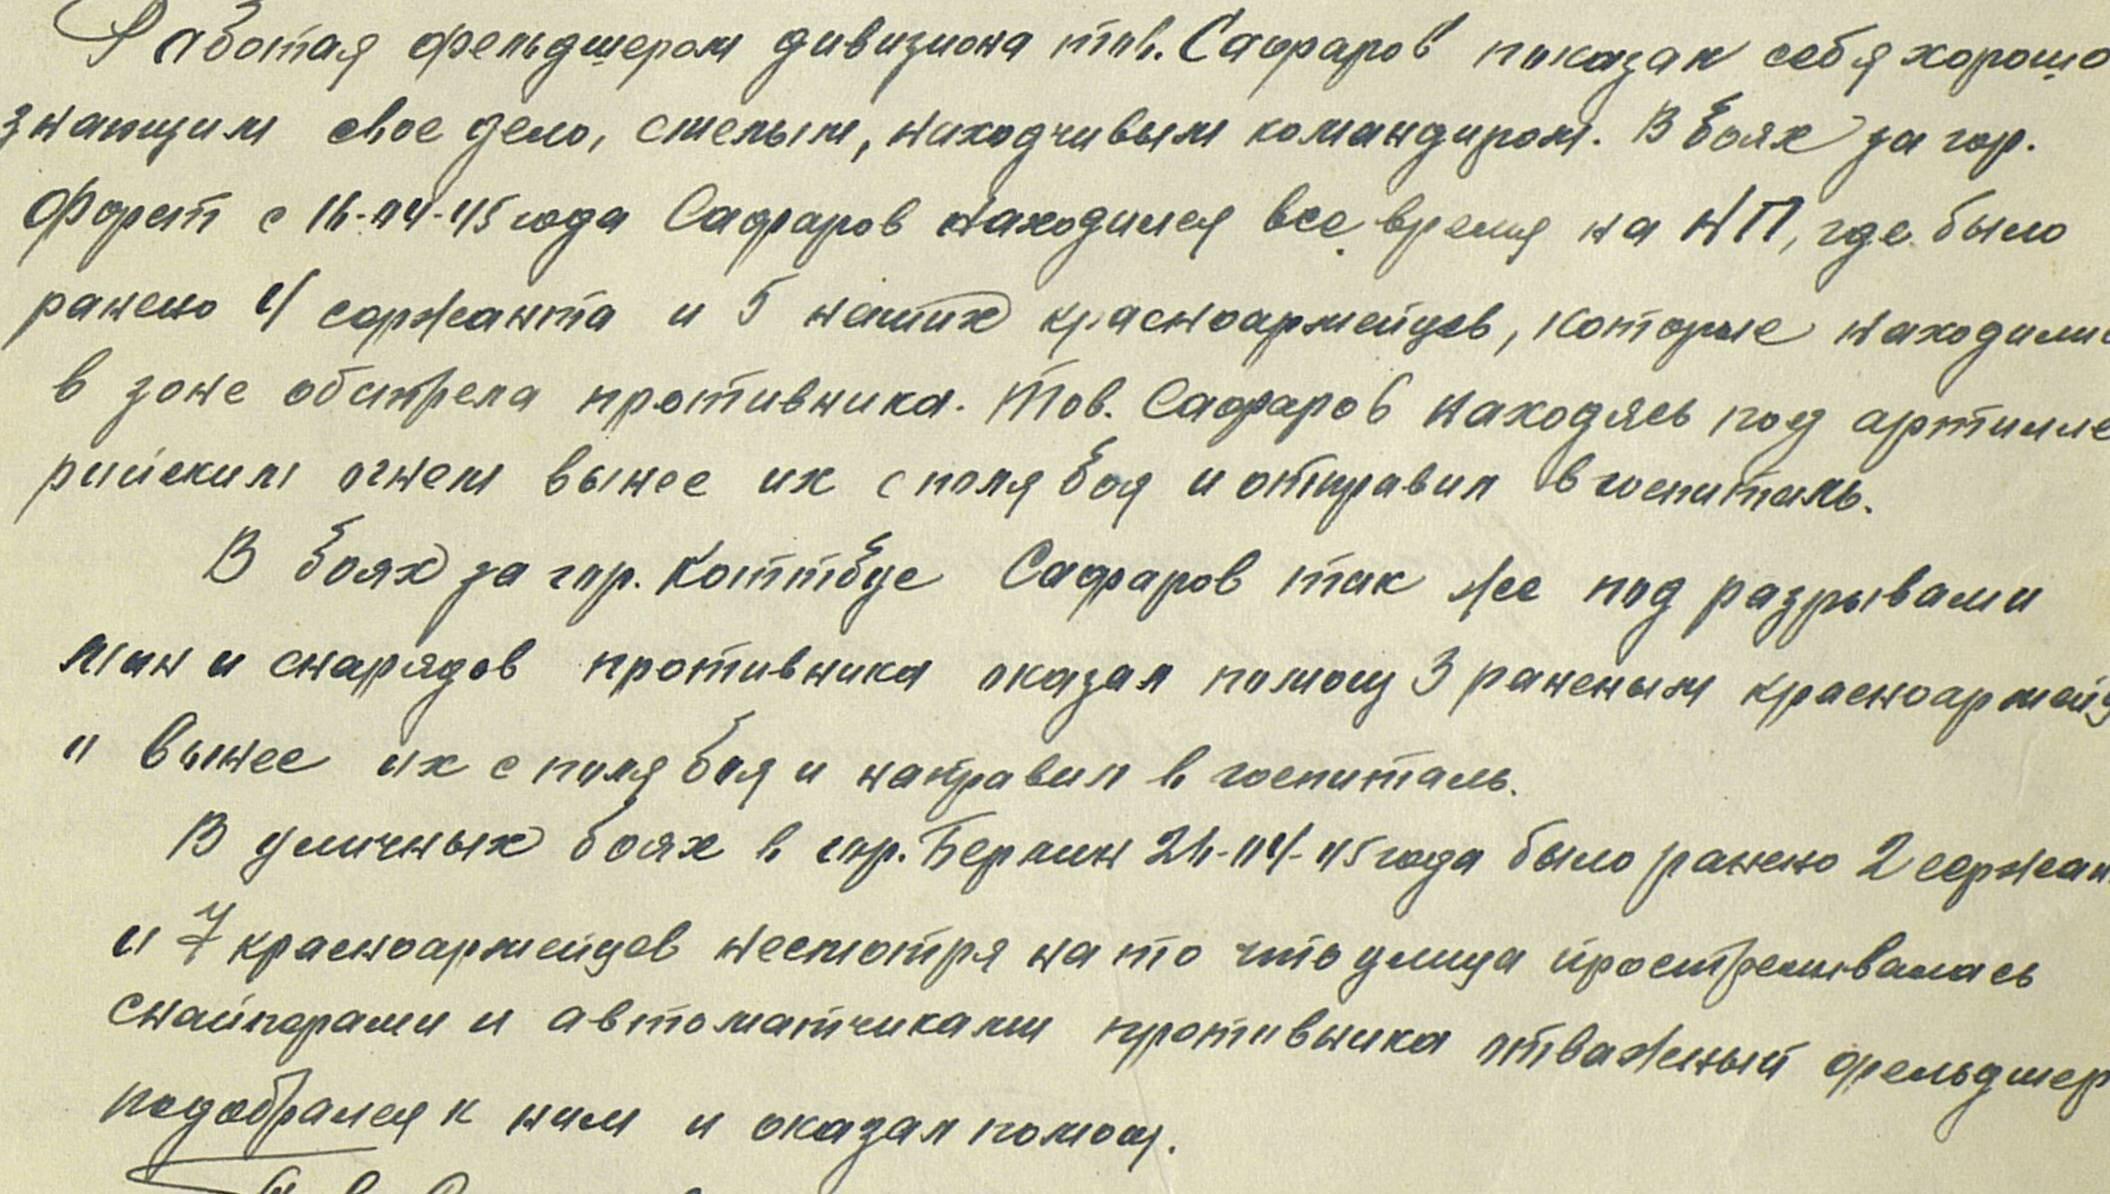 Работая фельдшером дивизиона тов. Сафаров показал себя хорошо
знающим свое дело, смелым, находчивым командиром. В боях за гор.
Форст с 16-04-45 года Сафаров находился все время на НП, где было
ранено 4 сержанта и 5 наших красноармейцев, которые находилис
в зоне обстрела противника. Тов. Сафаров находясь под артилле
рийским огнем вынес их с поля боя и отправил в госпиталь.
В боях за гор. Коттбус Сафаров так же под разрывами
мин и снарядов противника оказал помощ 3 раненым красноармейц
и вынес их с поля боя и направил в госпиталь.
В уличных боях в гор. Берлин 26-04-45 года было ранено 2 сержан
и 7 красноармейцев несмотря на то что улица простреливалась
снайперами и автоматчиками противника отважный фельдшер
подобрался к ним и оказал помощ.